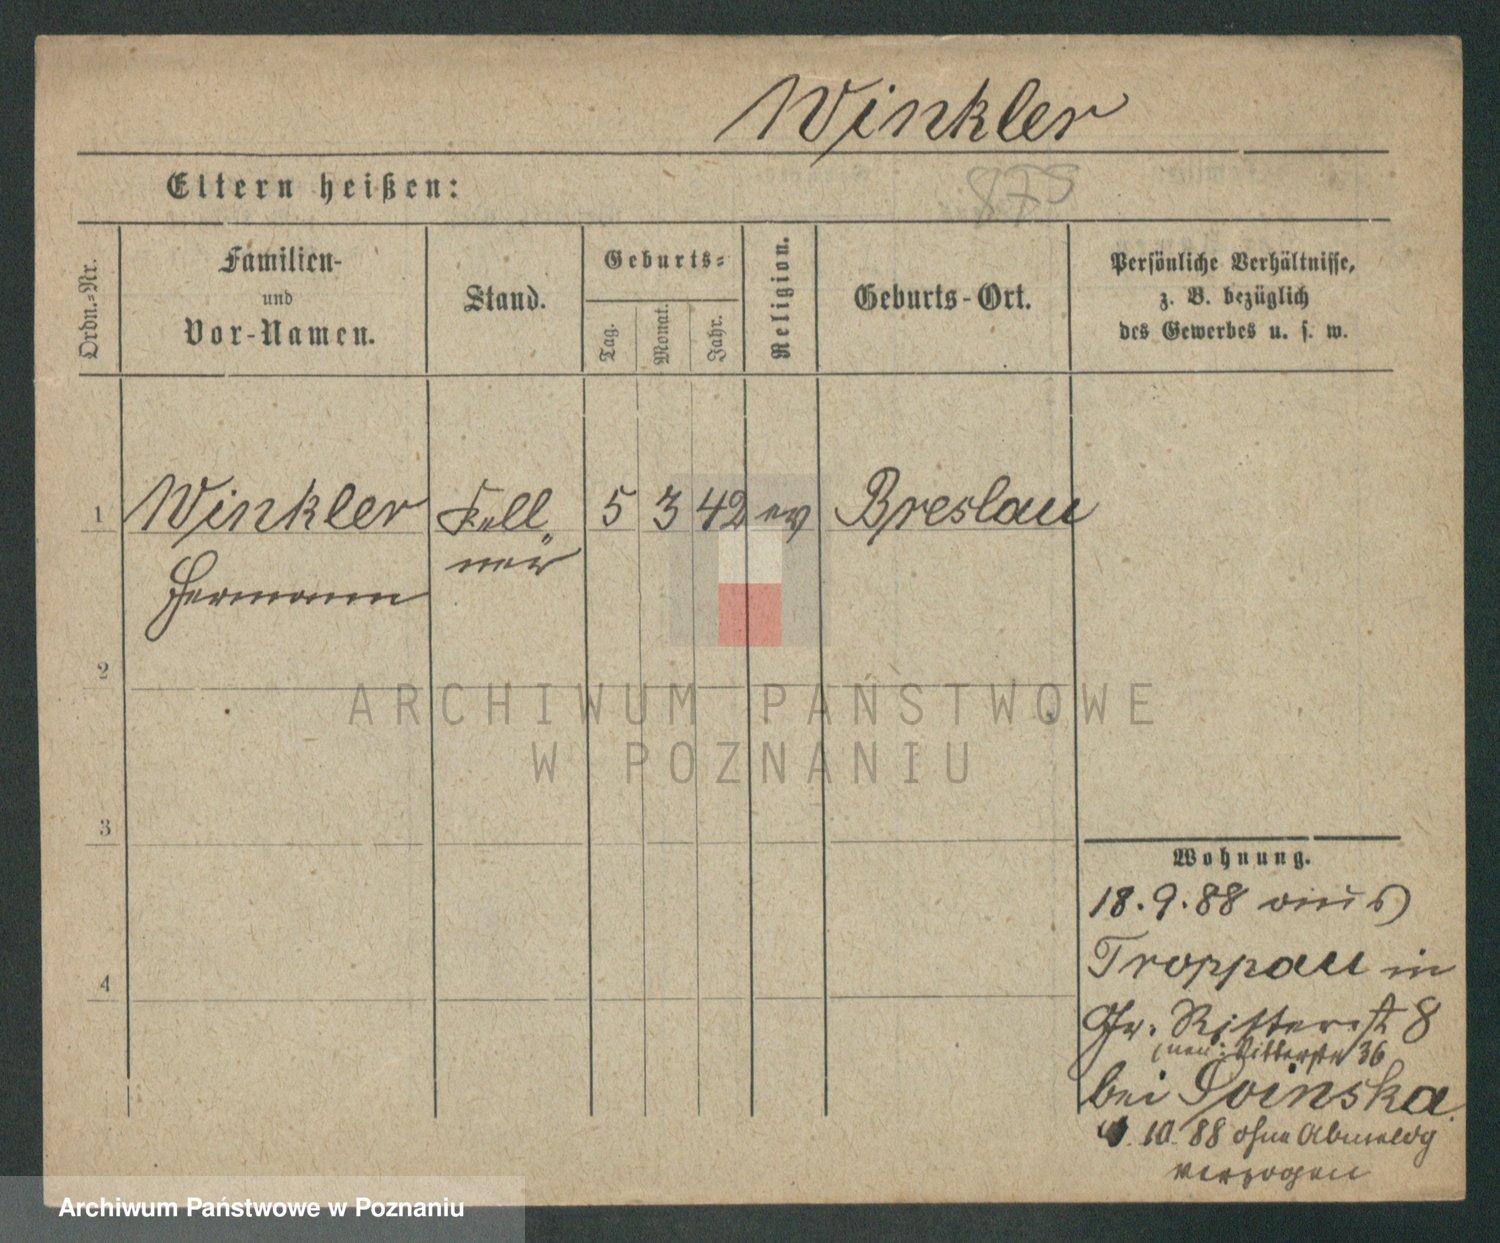 Winkler
Eltern heißen:
875
Ordn.-Nr.
Familien-
und
Vor-Namen.
Stand.
Geburts-
Tag.
Monat.
Jahr.
Religion.
Geburts-Ort.
Persönliche Verhältnisse,
z. B. bezüglich
des Gewerbes u. s. w.
1 Winkler Kell 5 3 42 ev Breslau
Hermann ner
2
ARCHIWUM PAŃSTWOWE
W POZNANIU
3
4
Wohnung.
18.9.88 aus
Troppau in
Gr. Ritterst 8
(neu: Ritterstr 36
bei
10 88 ohne Abmeldg
verzogen
Archiwum Państwowe w Poznaniu